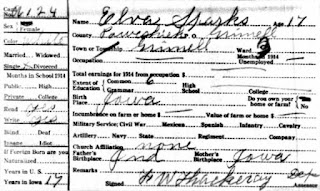 Card No. 124 Name Elva Sparks Age 17
Sex Male Female County Poweshiek P.O. Grinnell
Color Town or Township Grinnell Ward 3
Married Widowed Occupation Months in 1914 Unemployed
Single Divorced Total earnings for 1914 from occupation $
Months in School 1914 Extent of Education Common 6 Grammar High School College
Public High
Private College Birthplace Iowa Do you own your home or farm?
Read yes Incumbrance on farm or home $ Value of farm or home $
Write yes Military Service: Civil War Mexican Spanish Infantry Cavalry
Blind Deaf Artillery Navy State Regiment Company
Insane Idiot Church Affiliation none
If Foreign Born are you Naturalized Father's Birthplace Ind Mother's Birthplace Iowa
Years in U.S. Remarks
Years in Iowa 17 Signed